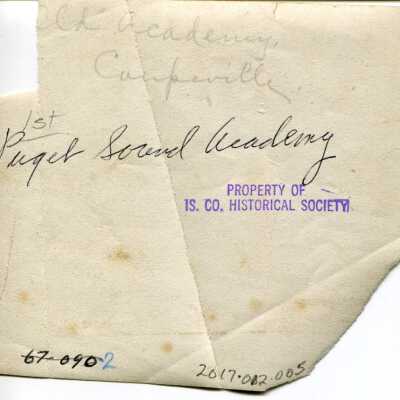 Old Academy,
Coupeville.
1st
Puget Sound Academy
PROPERTY OF
IS. CO. HISTORICAL SOCIETY
67-090-2
2017.012.005